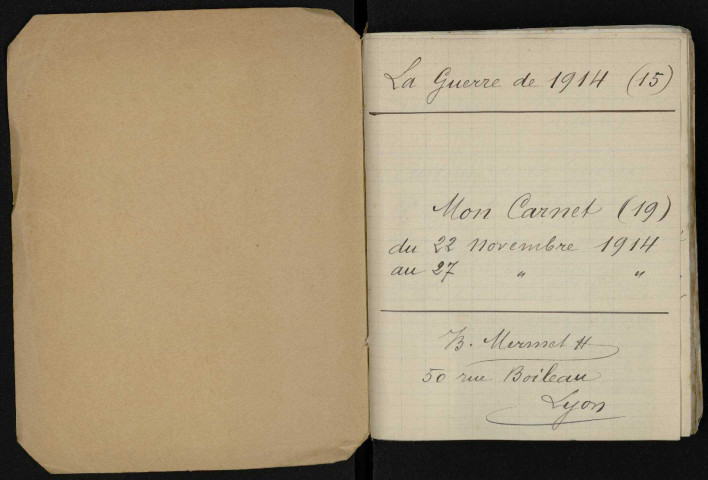 La Guerre de 1914 (15)
Mon Carnet (19)
du 22 novembre 1914
au 27 " "
B. Mermet
50 rue Boileau
Lyon